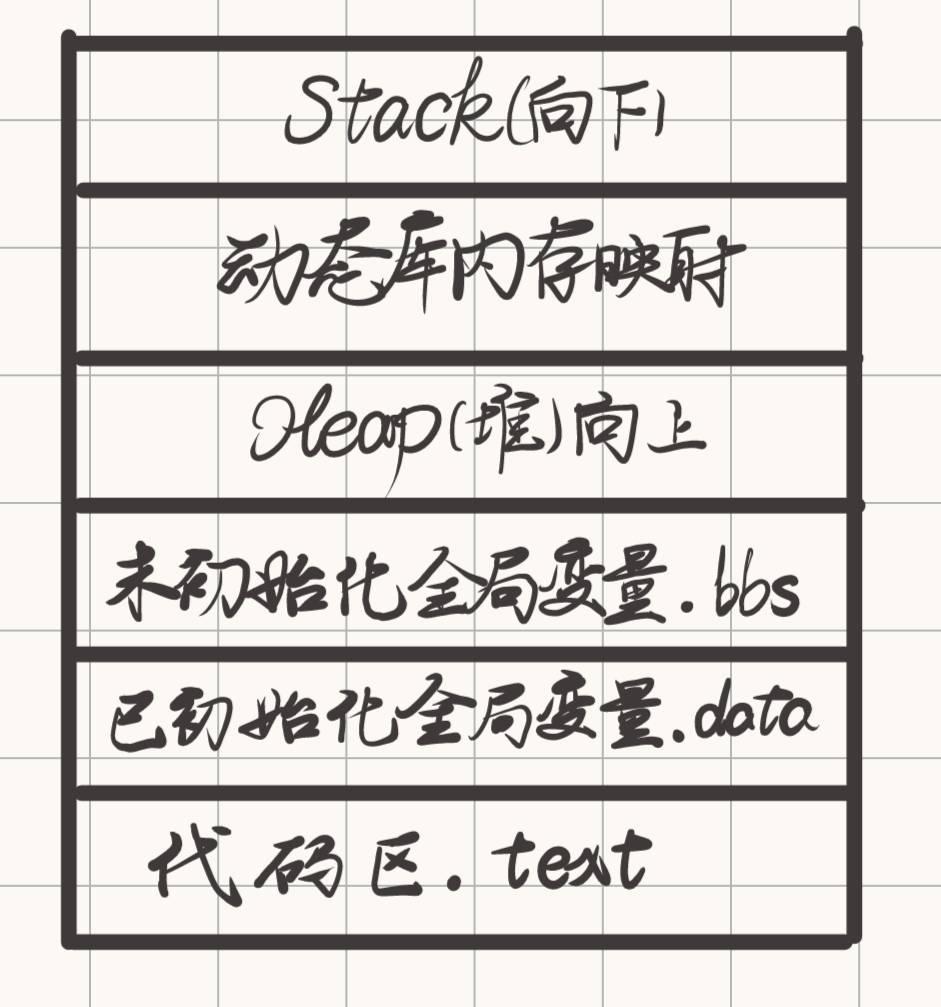 Stack(向下)
动态库内存映射
Heap(堆)向上
未初始化全局变量.bbs
已初始化全局变量.data
代码区.text